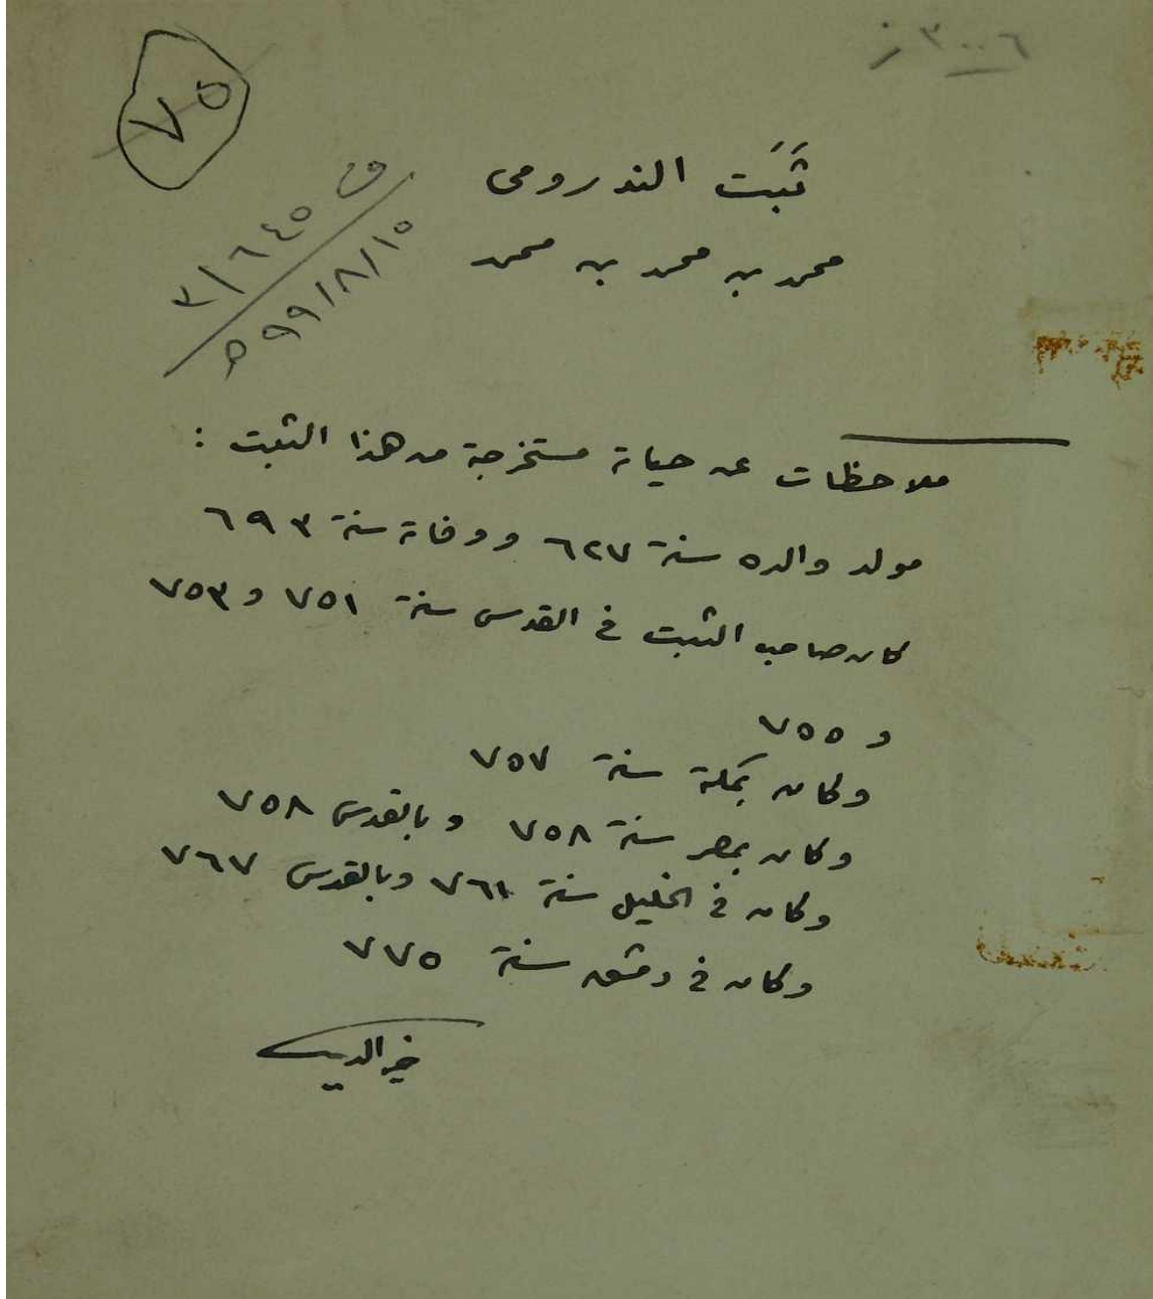 ٣٠٠٦ ز
٧٥
ف ٣/٦٤٥
٩٩/٨/١٥ ه
ثَبَت الندرومى
محمد بن محمد بن محمد
ملاحظات عن حياته مستخرجة من هذا الثبت :
مولد والده سنة ٦٢٧ ووفاته سنة ٦٩٣
كان صاحب الثبت في القدس سنة ٧٥١ و ٧٥٣
و ٧٥٥
وكان بمكة سنة ٧٥٧
وكان بمصر سنة ٧٥٨ وبالقدس ٧٥٨
وكان في الخليل سنة ٧٦١ وبالقدس ٧٦٧
وكان في دمشق سنة ٧٧٥
خير الدين